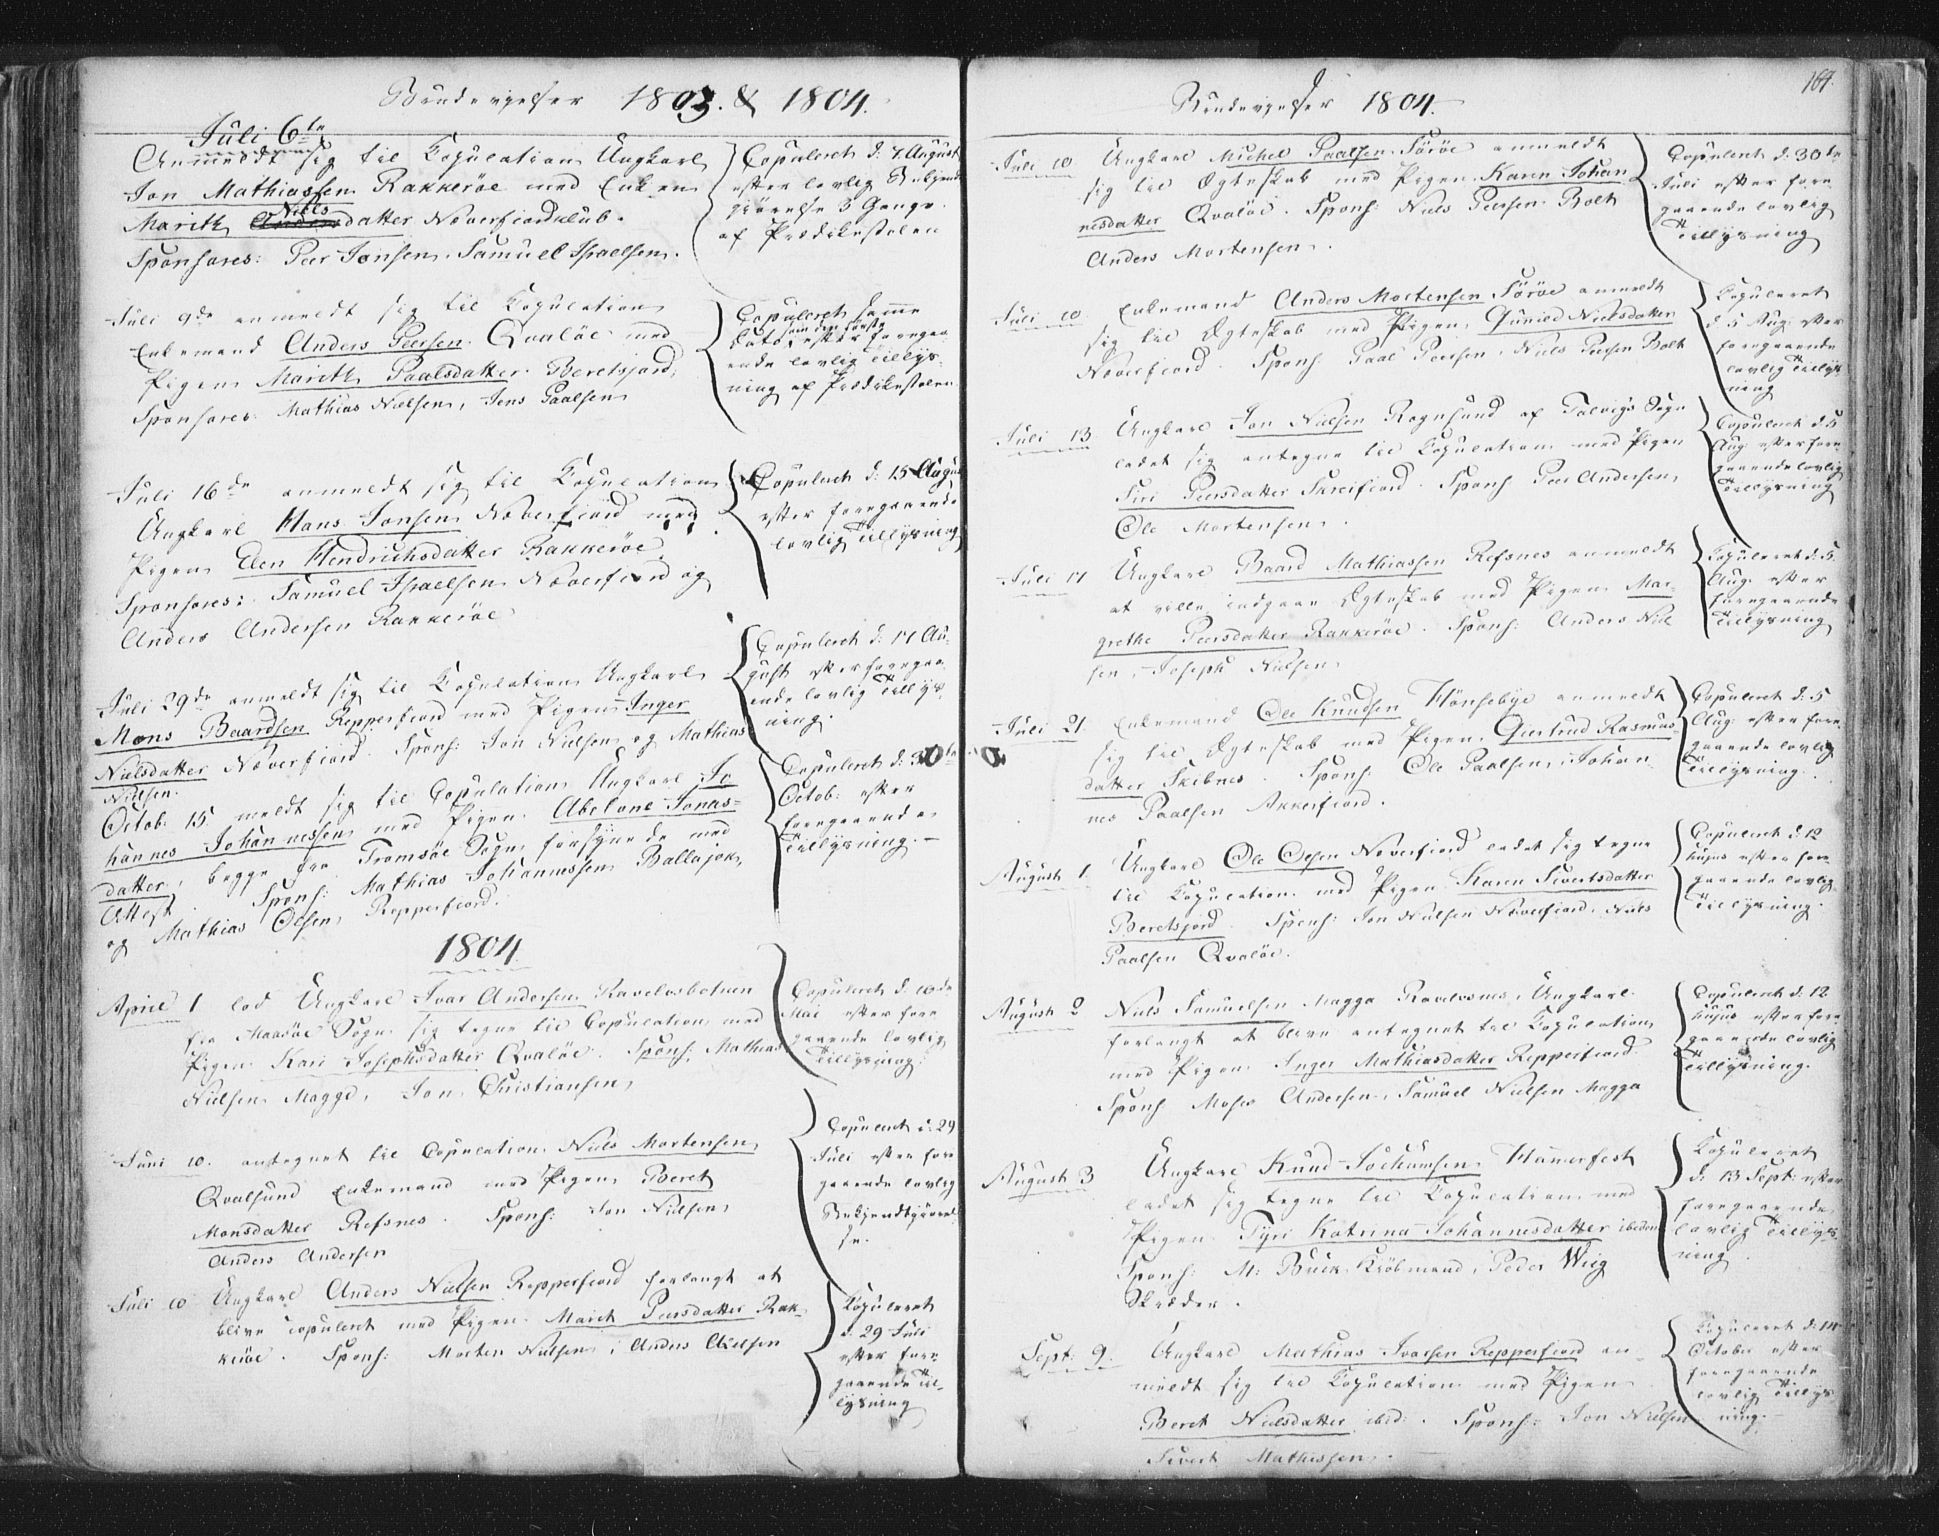 Bindevielser 1803. & 1804.
Juli 6te
Anmeldt sig til Copulation Ungkarl
Jon Mathiassen Rakkerøe med Enken
Marith Niels datter Noverfiordklub.
Sponsores: Peer Jonsen. Samuel Isaelsen.
Copuleret d: 7 August
efter lovlig Bekjendt
giørelse 3 Gange
af Prædikestolen
Juli 9de anmeldt sig til Copulation
Enkemand Anders Peersen Qvaløe med
Pigen Marith Paalsdatter Beretsjord,
Sponsores: Mathias Nielsen, Jens Paalsen
Copuleret samme
som den første
Dato efter foregaa
ende lovlig Tillys
ning af Prædikestolen
Juli 16de anmeldt sig til Copulation
Ungkarl Hans Jonsen Noverfiord med
Pigen Elen Hendrichsdatter Rakkerøe
Sponsores: Samuel Isaelsen Noverfiord og
Anders Andersen Rakkerøe
Copuleret d: 15 Augus
efter foregaaende
lovlig Tillysning
Juli 29de anmeldt sig til Copulation Ungkarl
Mons Baardsen Repperfiord med Pigen Inger
Nielsdatter Noverfiord Spons: Jon Nielsen og Mathias
Nielsen.
Copuleret d: 17 Au-
gust efter foregaa
ende lovlig Tillys
ning.
Octob: 15 meldt sig til Copulation Ungkarl Jo
hannes Johannessen med Pigen Abelone Jonas=
datter, begge fra Tromsøe Sogn forsynede med
Attest. Spons: Mathias Johannessen Ballajok,
og Mathias Olsen Repperfiord.
Copuleret d: 30te
Octob: efter
foregaaende
Tillysning.
1804
April 1 lod Ungkarl Ivar Andersen Ravelvsbotnen
fra Maasøe Sogn sig tegne til Copulation med
Pigen Kari Josephsdatter Qvaløe. Spons: Mathias
Nielsen Magga, Jon Christiansen
Copuleret d: 10de
Mai efter fore
gaaende lovlig
Tillysning.
Juni 10. antegnet til Copulation Niels Mortensen
Qvalsund Enkemand med Pigen Beret
Monsdatter Refsnes. Spons: Jon Nielsen
Anders Andersen
Copuleret d: 29
Juli efter fore
gaaende lovlig
Bekjendtgiørel
se.
Juli 10 Ungkarl Anders Nielsen Repperfiord forlangt at
blive copuleret med Pigen Marit Peersdatter Rak-
kerøe. Spons: Morten Nielsen, Anders Olsen
Copuleret
d: 29 Juli
efter fore
gaaende Til-
lysning
164.
Bindevielser 1804.
Juli 10 Ungkarl Michel Paalsen Sørøe anmeldt
sig til Ægteskab med Pigen Karen Johan
nesdatter Qvaløe. Spons: Niels Peersen Bolt
Anders Mortensen.
Copuleret d: 30te
Juli efter fore
gaaende lovlig
Tillysning
Juli 10 Enkemand Anders Mortensen Sørøe anmeldt
sig til Ægteskab med Pigen Nielsdatter
Noverfiord. Spons Paal Peersen, Niels Peersen Bolt
Copuleret
d 5 Aug: efter
foregaaende
lovlig Tillys
ning
Juli 13 Ungkarl Jon Nielsen Rognsund af Talvigs Sogn
ladet sig antegne til Copulation med Pigen
Siri Peersdatter Skreifiord. Spons Peer Andersen,
Ole Mortensen.
Copuleret d: 5
Aug: efter fore
gaaende lovlig
Tillysning
Juli 17 Ungkarl Baard Mathiassen Refsnes anmeldt
at ville indgaae Ægteskab med Pigen Mar-
grethe Peersdatter Rakkerøe. Spons: Anders Niel
sen, Joseph Nielsen
Copuleret d: 5
Aug: efter
foregaaende
Tillysning
Juli 21. Enkemand Ole Knudsen Hønsebye anmeldt
sig til Ægteskab med Pigen Giertrud Rasmus-
datter Skibnes. Spons: Ole Paalsen, Johan
nes Paalsen Akkerfiord.
Copuleret d: 5
Aug: efter fore
gaaende lovlig
Tillysning.
August 1. Ungkarl Ole Olsen Noverfiord ladet sig tegne
til Copulation med Pigen Karen Sivertsdatter
Beretsjord. Spons: Jon Nielsen Noverfiord, Niels
Paalsen Qvaløe.
Copuleret d: 12
hujus efter fore
gaaende lovlig
Tillysning.
August 2 Niels Samuelsen Magga Ravelvsnes, Ungkarl
forlangt at blive antegnet til Copulation
med Pigen Inger Mathiasdatter Repperfiord.
Spons Moses Andersen, Samuel Nielsen Magga
Copuleret d: 12
hujus efter fore
gaaende lovlig
Tillysning.
August 3 Ungkarl Knud Jochumsen Hammerfest
ladet sig tegne til Copulation med
Pigen Tyri Katrina Johannesdatter ibidem
Spons: M: Buck Kiøbmand, Peder Wiig
Skræder.
Copuleret
d: 13 Sept: efter
foregaaende
lovlig Tillys
ning
Sept: 9. Ungkarl Mathias Ivarsen Repperfiord an-
meldt sig til Copulation med Pigen
Beret Nielsdatter ibid: Spons: Jon Nielsen
Sivert Mathissen.
Copuleret d: 14
October efter
foregaaende
lovlig Tillys
ning.